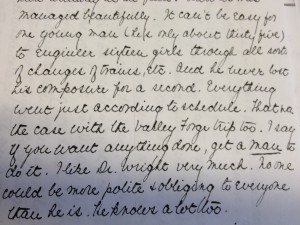 managed beautifully. It can't be easy for
one young man (he's only about thirty five)
to engineer sixteen girls through all sorts
of changes of trains, etc. And he never lost
his composure for a second. Everything
went just according to schedule. That was
the case with the Valley Forge trip too. I say
if you want anything done, get a man to
do it. I like Dr. Wright very much. No one
could be more polite & obliging to everyone
than he is. He knows a lot too.